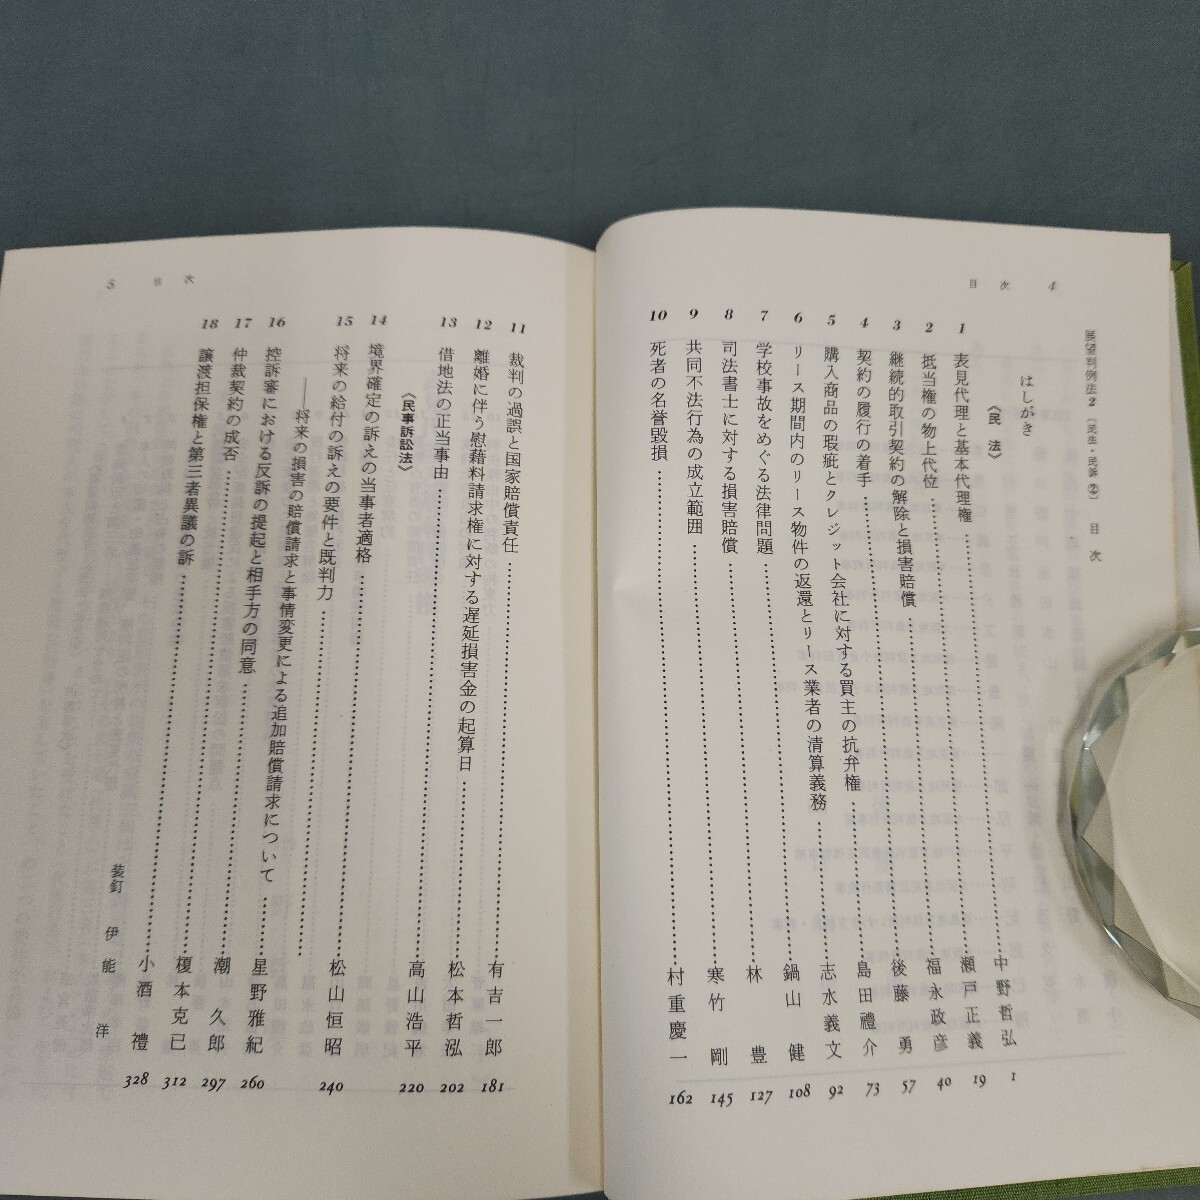 目次 4
展望判例法2（民法・民訴②） 目次
はしがき
〈民法〉
1 表見代理と基本代理権 中野哲弘 1
2 抵当権の物上代位 瀬戸正義 19
3 継続的取引契約の解除と損害賠償 福永政彦 40
4 契約の履行の着手 後藤勇 57
5 購入商品の瑕疵とクレジット会社に対する買主の抗弁権 島田禮介 73
6 リース期間内のリース物件の返還とリース業者の清算義務 志水義文 92
7 学校事故をめぐる法律問題 鍋山健 108
8 司法書士に対する損害賠償 林豊 127
9 共同不法行為の成立範囲 寒竹剛 145
10 死者の名誉毀損 村重慶一 162
5 目次
11 裁判の過誤と国家賠償責任 有吉一郎 181
12 離婚に伴う慰藉料請求権に対する遅延損害金の起算日 松本哲泓 202
13 借地法の正当事由 高山浩平 220
〈民事訴訟法〉
14 境界確定の訴えの当事者適格 松山恒昭 240
15 将来の給付の訴えの要件と既判力
――将来の損害の賠償請求と事情変更による追加賠償請求について 星野雅紀 260
16 控訴審における反訴の提起と相手方の同意 潮久郎 297
17 仲裁契約の成否 榎本克巳 312
18 譲渡担保権と第三者異議の訴 小酒禮 328
装釘 伊能洋